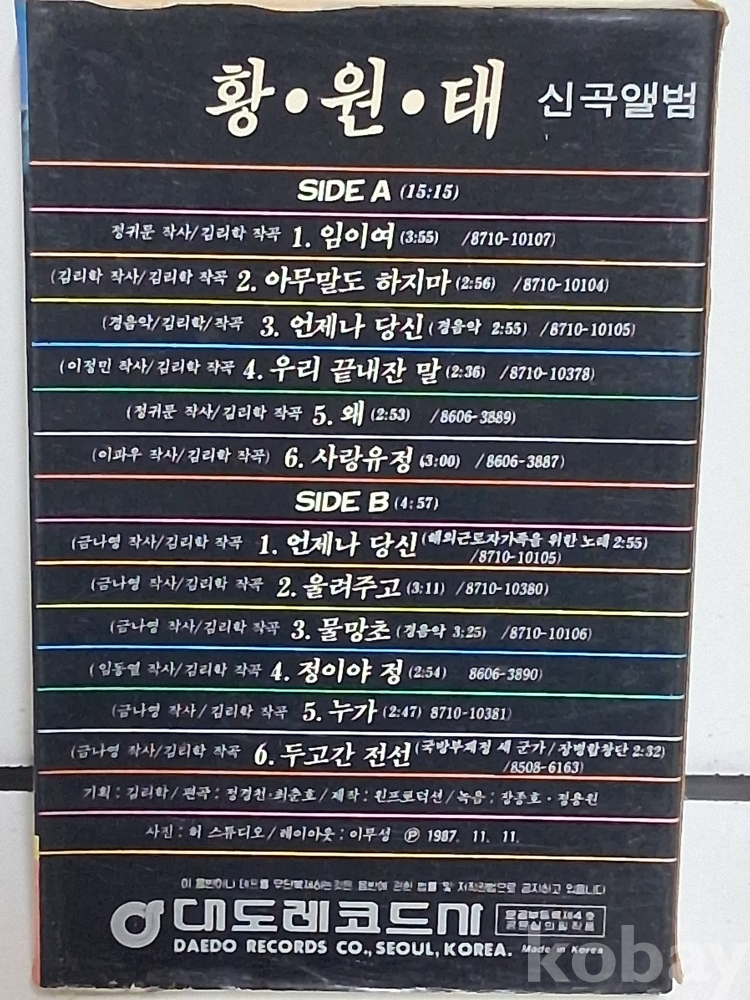 황·원·태 신곡앨범
SIDE A (15:15)
정귀문 작사/김리학 작곡 1. 임이여 (3:55) /8710-10107)
(김리학 작사/김리학 작곡 2. 아무말도 하지마 (2:56) /8710-10104)
(경음악/김리학/작곡 3. 언제나 당신 (경음악 2:55) /8710-10105)
(이정민 작사/김리학 작곡 4. 우리 끝내잔 말 (2:36) /8710-10378)
(정귀문 작사/김리학 작곡 5. 왜 (2:53) /8606-3889)
(이파우 작사/김리학 작곡) 6. 사랑유정 (3:00) /8606-3887)
SIDE B (4:57)
(금나영 작사/김리학 작곡 1. 언제나 당신 (해외근로자가족을 위한 노래 2:55)
/8710-10105)
(금나영 작사/김리학 작곡 2. 울려주고 (3:11) /8710-10380)
(금나영 작사/김리학 작곡 3. 물망초 (경음악 3:25) /8710-10106)
(임동열 작사/김리학 작곡 4. 정이야 정 (2:54) 8606-3890)
(금나영 작사/김리학 작곡 5. 누가 (2:47) 8710-10381)
(금나영 작사/김리학 작곡 6. 두고간 전선 (국방부제정 새 군가/장병합창단 2:32)
/8508-6163)
기획:김리학/편곡:정경천·최춘호/제작:원프로덕션/녹음:장종호·정용원
사진:허 스튜디오/레이아웃:이무성 ℗ 1987. 11. 11.
이 음반이나 테프를 무단복제하는것은 음반에 관한 법률 및 저작권법으로 금지하고 있읍니다
대도레코드사 문공부등록제4호
공륜심의필작품
DAEDO RECORDS CO., SEOUL, KOREA. Made in Korea
kobay